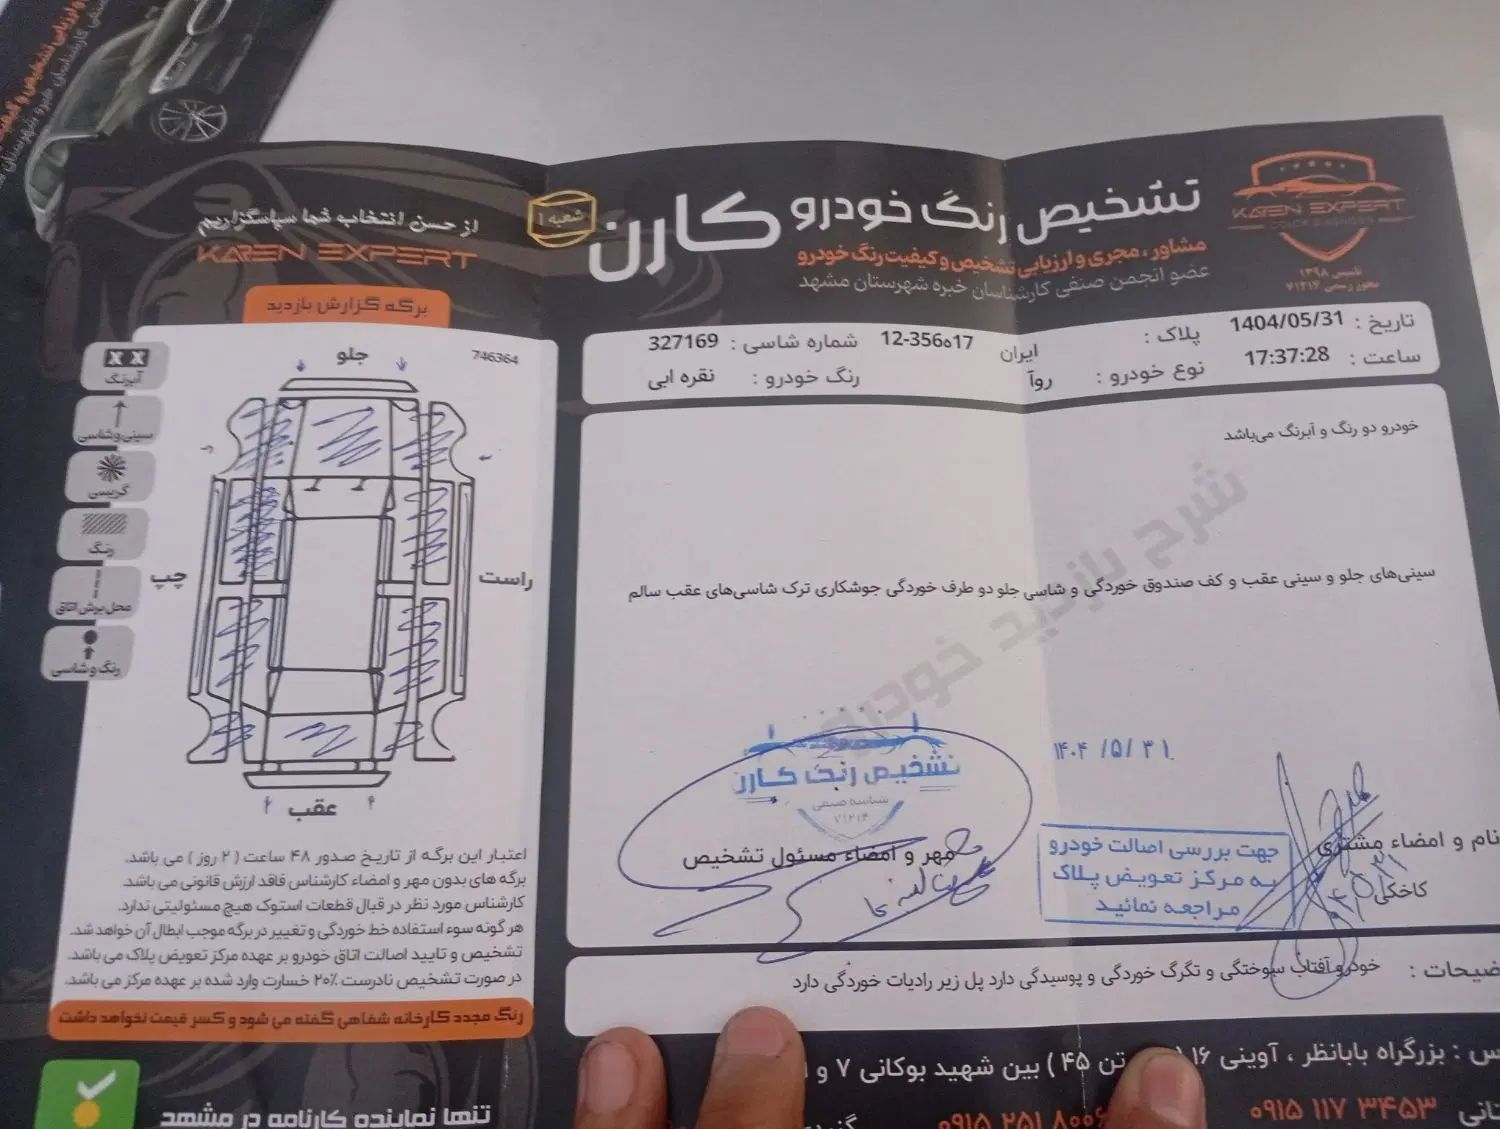 تشخیص رنگ خودرو کارن
شعبه ۱
مشاور، مجری و ارزیابی تشخیص و کیفیت رنگ خودرو
عضو انجمن صنفی کارشناسان خبره شهرستان مشهد
KAREN EXPERT
تاسیس ۱۳۹۸
مجوز رسمی ۷۱۲۱۴
تاریخ : 1404/05/31
پلاک : ایران 12-356ه17
شماره شاسی : 327169
ساعت : 17:37:28
نوع خودرو : روآ
رنگ خودرو : نقره ابی
خودرو دو رنگ و آبرنگ می‌باشد
سینی‌های جلو و سینی عقب و کف صندوق خوردگی و شاسی جلو دو طرف خوردگی جوشکاری ترک شاسی‌های عقب سالم
شرح بازدید خودرو
تشخیص رنگ کارن
شناسه صنفی
۷۱۲۱۴
مهر و امضاء مسئول تشخیص
۱۴۰۴/۵/۳۱
جهت بررسی اصالت خودرو
به مرکز تعویض پلاک
مراجعه نمائید
نام و امضاء مشتری
کاخکی
خودرو آفتاب سوختگی و تگرگ خوردگی و پوسیدگی دارد پل زیر رادیات خوردگی دارد
بزرگراه بابانظر ، آوینی ۱۶ (
تن ۴۵ ) بین شهید بوکانی ۷ و
۰۹۱۵ ۱۱۷ ۳۴۵۳
از حسن انتخاب شما سپاسگزاریم
KAREN EXPERT
برگه گزارش بازدید
746364
جلو
راست
چپ
عقب
آبرنگ
سینی و شاسی
گریسی
رنگ
محل برش اتاق
رنگ و شاسی
اعتبار این برگه از تاریخ صدور ۴۸ ساعت ( ۲ روز ) می باشد.
برگه های بدون مهر و امضاء کارشناس فاقد ارزش قانونی می باشد.
کارشناس مورد نظر در قبال قطعات استوک هیچ مسئولیتی ندارد.
هر گونه سوء استفاده خط خوردگی و تغییر در برگه موجب ابطال آن خواهد شد.
تشخیص و تایید اصالت اتاق خودرو بر عهده مرکز تعویض پلاک می باشد.
در صورت تشخیص نادرست ۲۰٪ خسارت وارد شده بر عهده مرکز می باشد.
رنگ مجدد کارخانه شفاهی گفته می شود و کسر قیمت نخواهد داشت
تنها نماینده کارنامه در مشهد